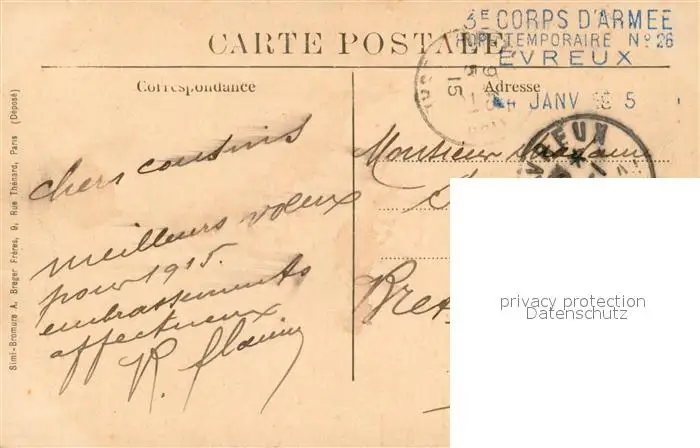 3E CORPS D'ARMEE
HOP. TEMPORAIRE No 26
EVREUX
4 JANV 5
CARTE POSTALE
Correspondance
Adresse
EVREUX
5
15
Simi-Bromure A. Breger Frères, 9, Rue Thénard, Paris (Déposé)
chers cousins
meilleurs voeux
pour 1915.
embrassements
affectueux
R.
Monsieur
privacy protection
Datenschutz